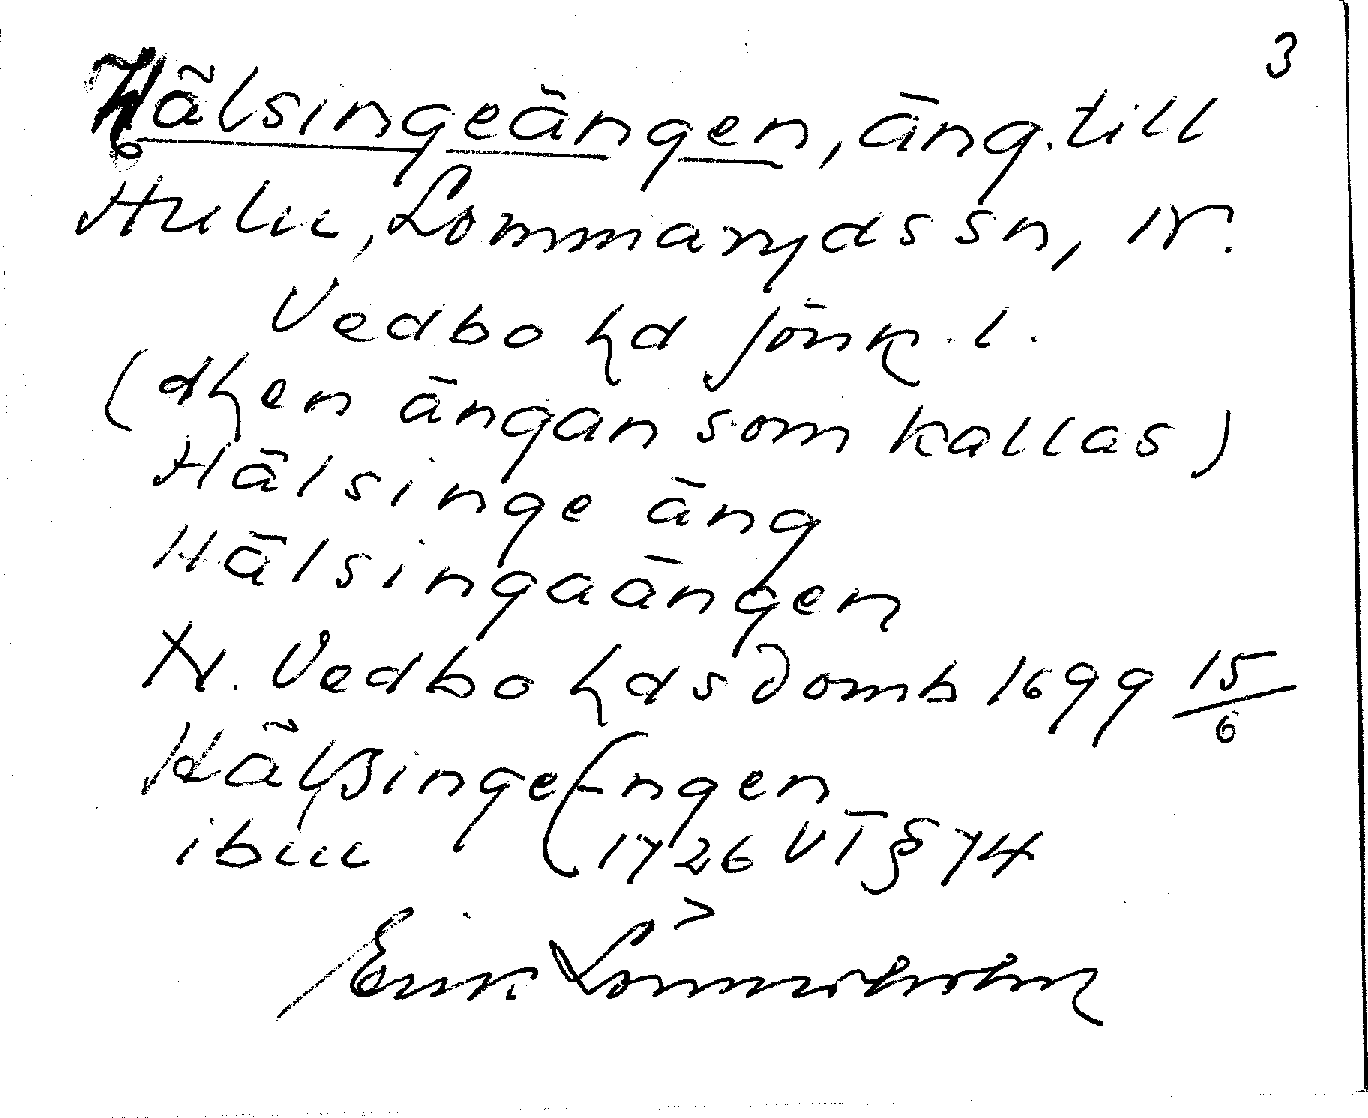 3
Hälsingeängen, äng till
Hulu, Lommaryds sn, N.
Vedbo hd Jönk. l.
(dhen ängan som kallas)
Hälsinge äng
Hälsingaängen
N. Vedbo hds domb 1699 15/6
HälßingeEngen
ibm 1726 VI § 74
Erik Lönnerholm